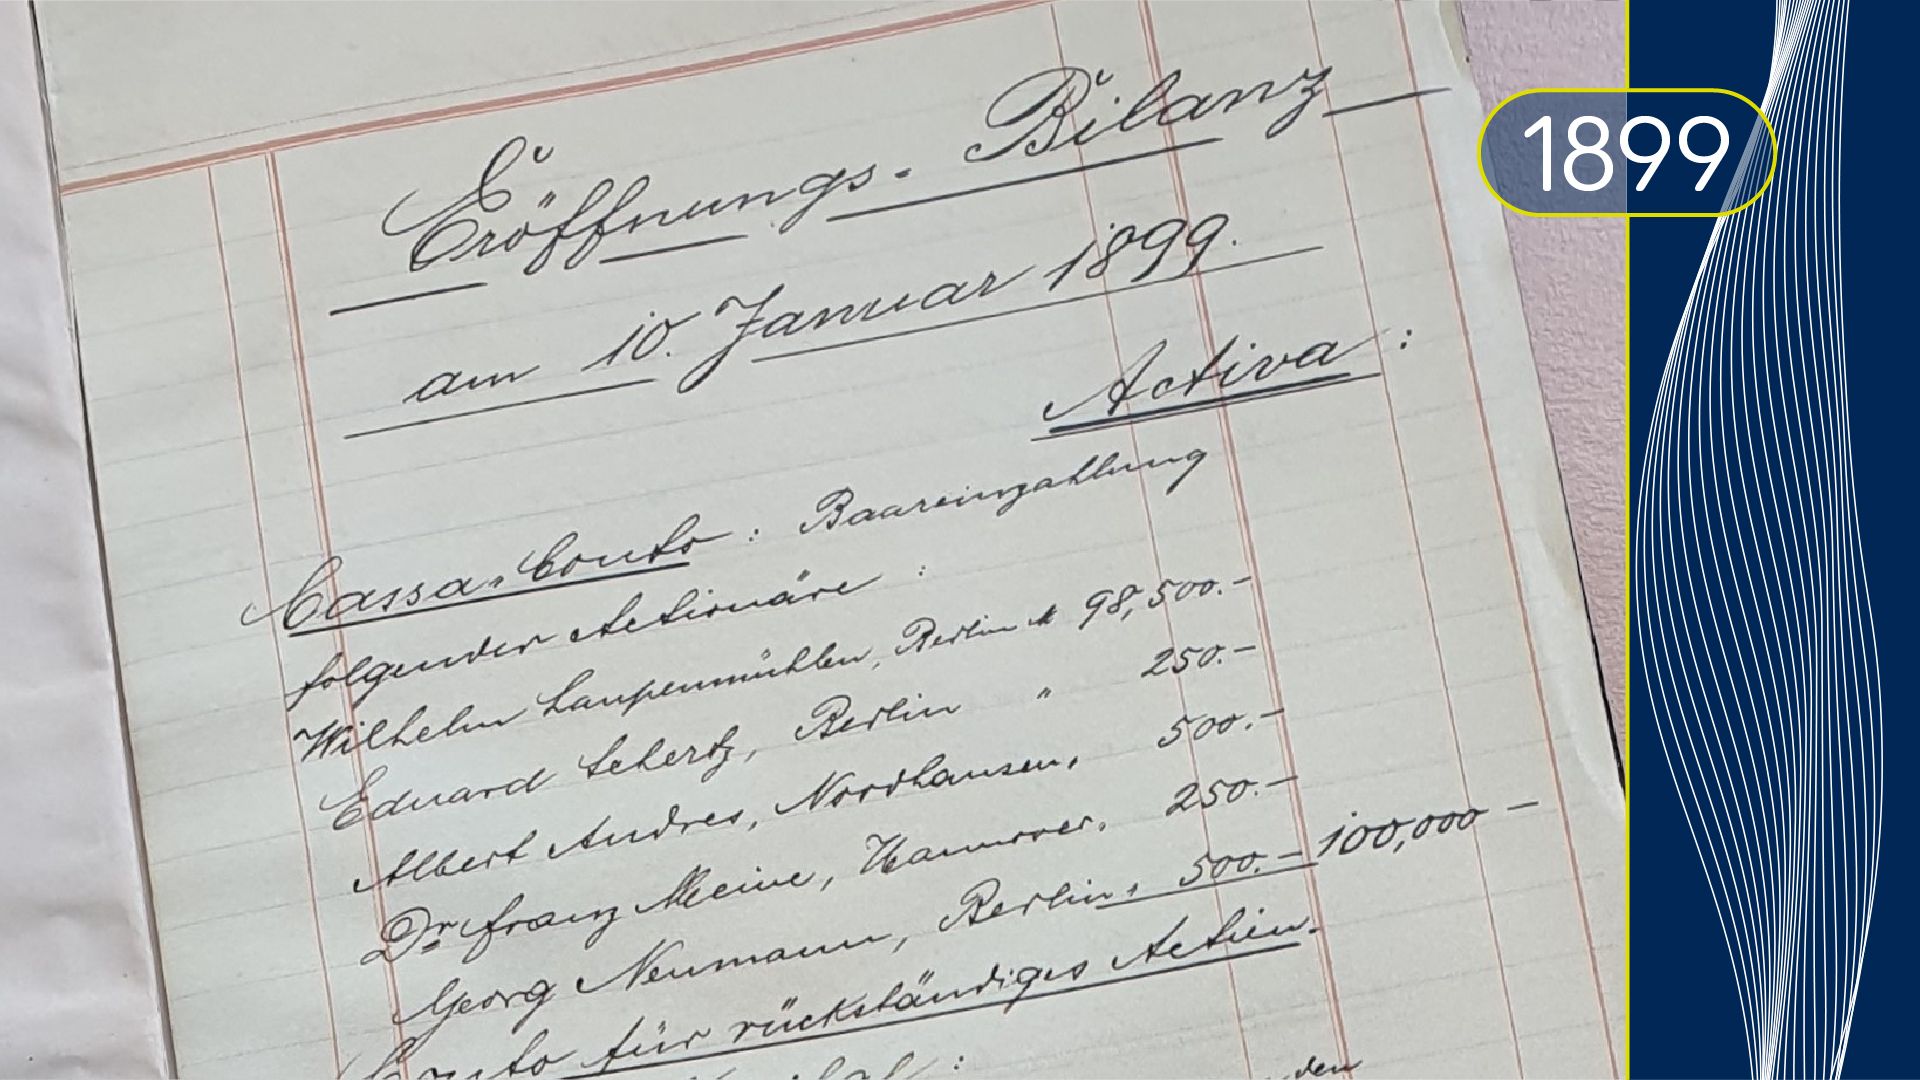 Eröffnungs-Bilanz
am 10. Januar 1899.
Activa:
Cassa-Conto: Baareinzahlung
folgender Actionäre:
Wilhelm Laupenmühlen, Berlin M 98,500.-
Eduard Schertz, Berlin " 250.-
Albert Andres, Nordhausen, 500.-
Dr Franz Meine, Hannover, 250.-
Georg Neumann, Berlin, 500.- 100,000 -
Conto für rückständiges Actien-
den
1899